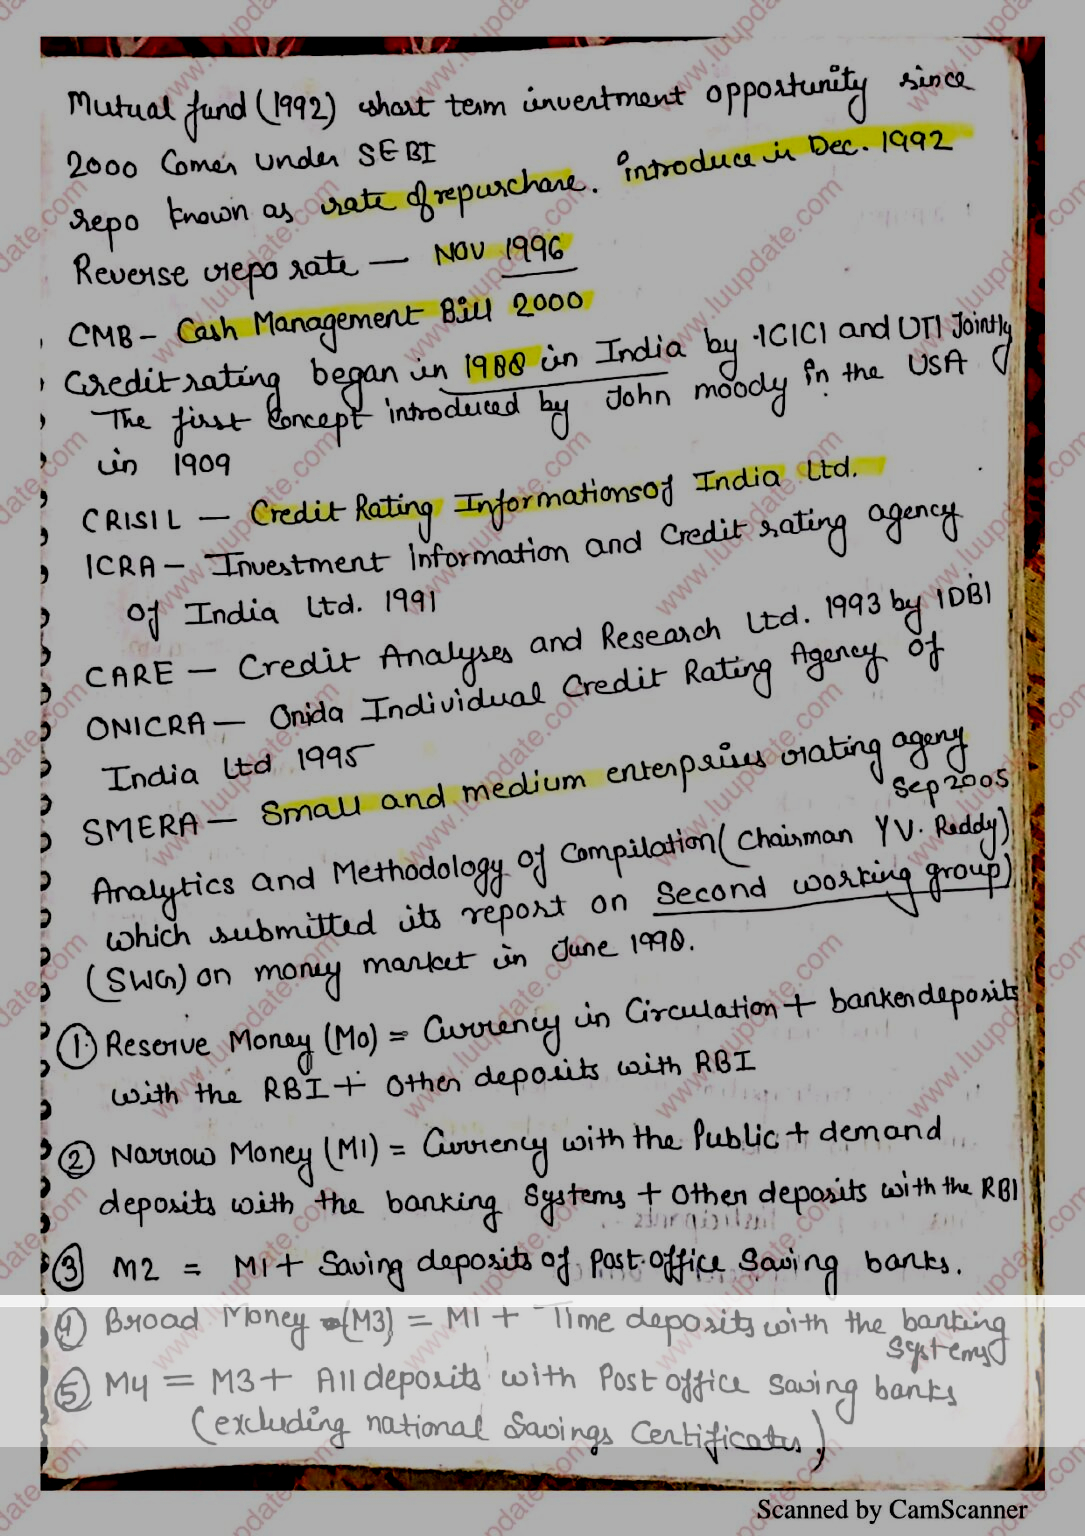 Mutual fund (1992) short term investment opportunity since
2000 Comes under SEBI
repo known as rate of repurchase. introduce in Dec. 1992
Reverse repo rate — NOV 1996
CMB - Cash Management Bill 2000
Credit rating began in 1988 in India by ICICI and UTI Jointly
The first Concept introduced by John moody in the USA
in 1909
CRISIL — Credit Rating Informations of India Ltd.
ICRA — Investment Information and Credit rating agency
of India Ltd. 1991
CARE — Credit Analyses and Research Ltd. 1993 by IDBI
ONICRA — Onida Individual Credit Rating Agency of
India Ltd 1995
SMERA — Small and medium enterprises rating ageny
Sep 2005
Analytics and Methodology of Compilation (Chairman Y V. Reddy)
which submitted its report on Second working group)
(SWG) on money market in June 1998.
① Reserve Money (M0) = Currency in Circulation + banker deposits
with the RBI + Other deposits with RBI
② Narrow Money (M1) = Currency with the Public + demand
deposits with the banking Systems + Other deposits with the RBI
③ M2 = M1 + Saving deposits of Post office Saving banks.
④ Broad Money (M3) = M1 + Time deposits with the banking
Systems
⑤ M4 = M3 + All deposits with Post office Saving banks
(excluding national Savings Certificates)
Scanned by CamScanner
www.luupdate.com